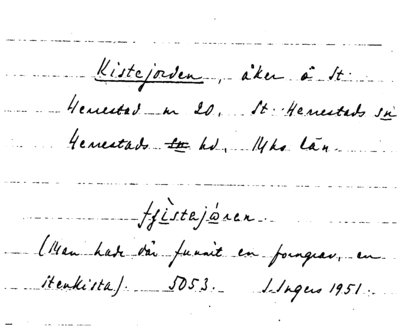 Kistejorden, åker å St.
Herrestad nr 20, St. Herrestads sn
Herrestads hd, Mhs län.
(Man hade där funnit en forngrav, en
stenkista). 5053. I. Ingers 1951.